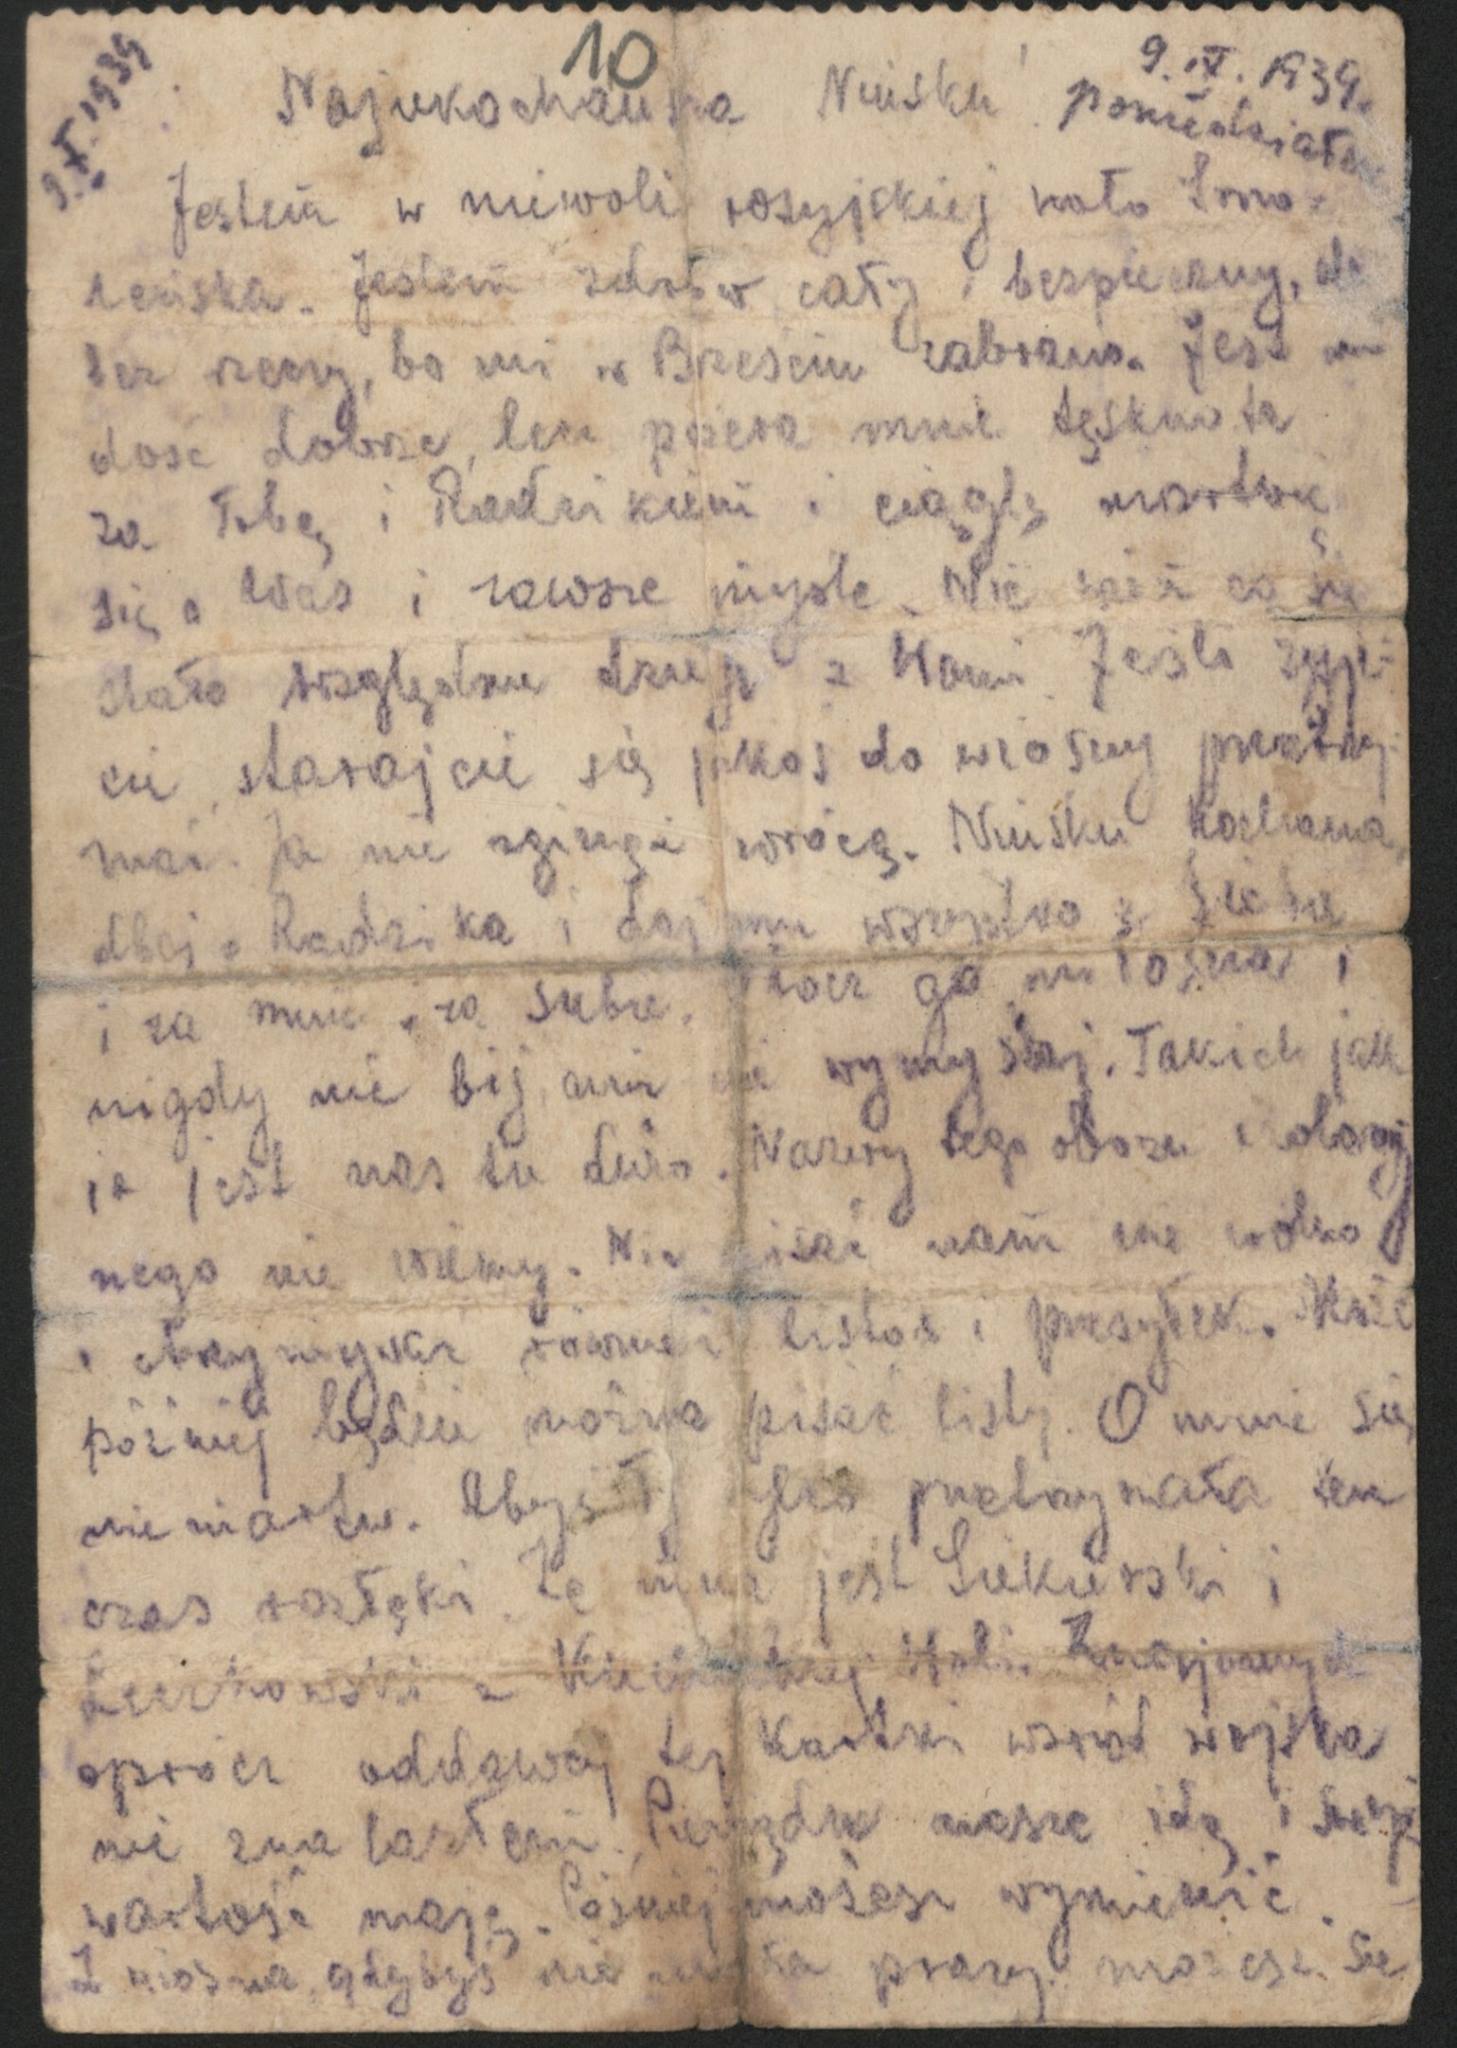 10
9.X.1939
9.X.1939.
poniedziałek
Najukochańsza Niuśku!
Jestem w niewoli rosyjskiej koło Smo-
leńska. Jestem zdrów, cały i bezpieczny,
bez rzeczy, bo mi w Brześciu zabrano. Jest mi
dość dobrze, lecz pożera mnie tęsknota
za Tobą i Radzikiem i ciągle martwię
się o Was i zawsze myślę. Nie wiem co się
stało względnie dzieje z Wami. Jeśli żyje-
cie, starajcie się jakoś do wiosny przetrzy-
mać. Ja nie zginę i wrócę. Niuśku kochana,
dbaj o Radzika i daj mu wszystko z siebie
i za mnie i za siebie. Otocz go miłością i
nigdy nie bij, ani nie wymyślaj. Takich jak
ja jest nas tu dużo. Nazwy tego obozu
nego nie wiemy. Nie pisać nam nie wolno
i otrzymywać również listów i przesyłek. Może
później będzie można pisać listy. O mnie się
nie martw. Abyś Ty tylko przetrzymała ten
czas rozłąki. Ze mną jest Siekierski i
z Woli. Znajomych
oprócz oddawcy tej kartki wśród wojska
nie znalazłem. Pieniądze nasze idą i swoją
wartość mają. Później możesz wymienić.
Z wiosną, gdybyś nie miała pracy, możesz się